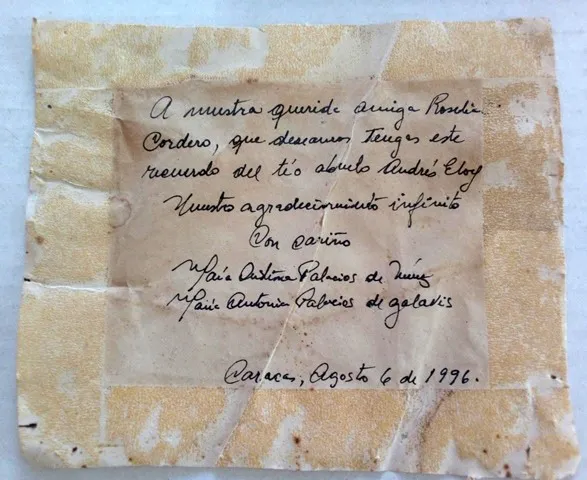 A nuestra querida amiga Roselia
Cordero, que deseamos tengas este
recuerdo del tío abuelo Andrés Eloy
Nuestro agradecimiento infinito
Con cariño
María Palacios de Núñez
María Antonia Palacios de galavis
Caracas, Agosto 6 de 1996.